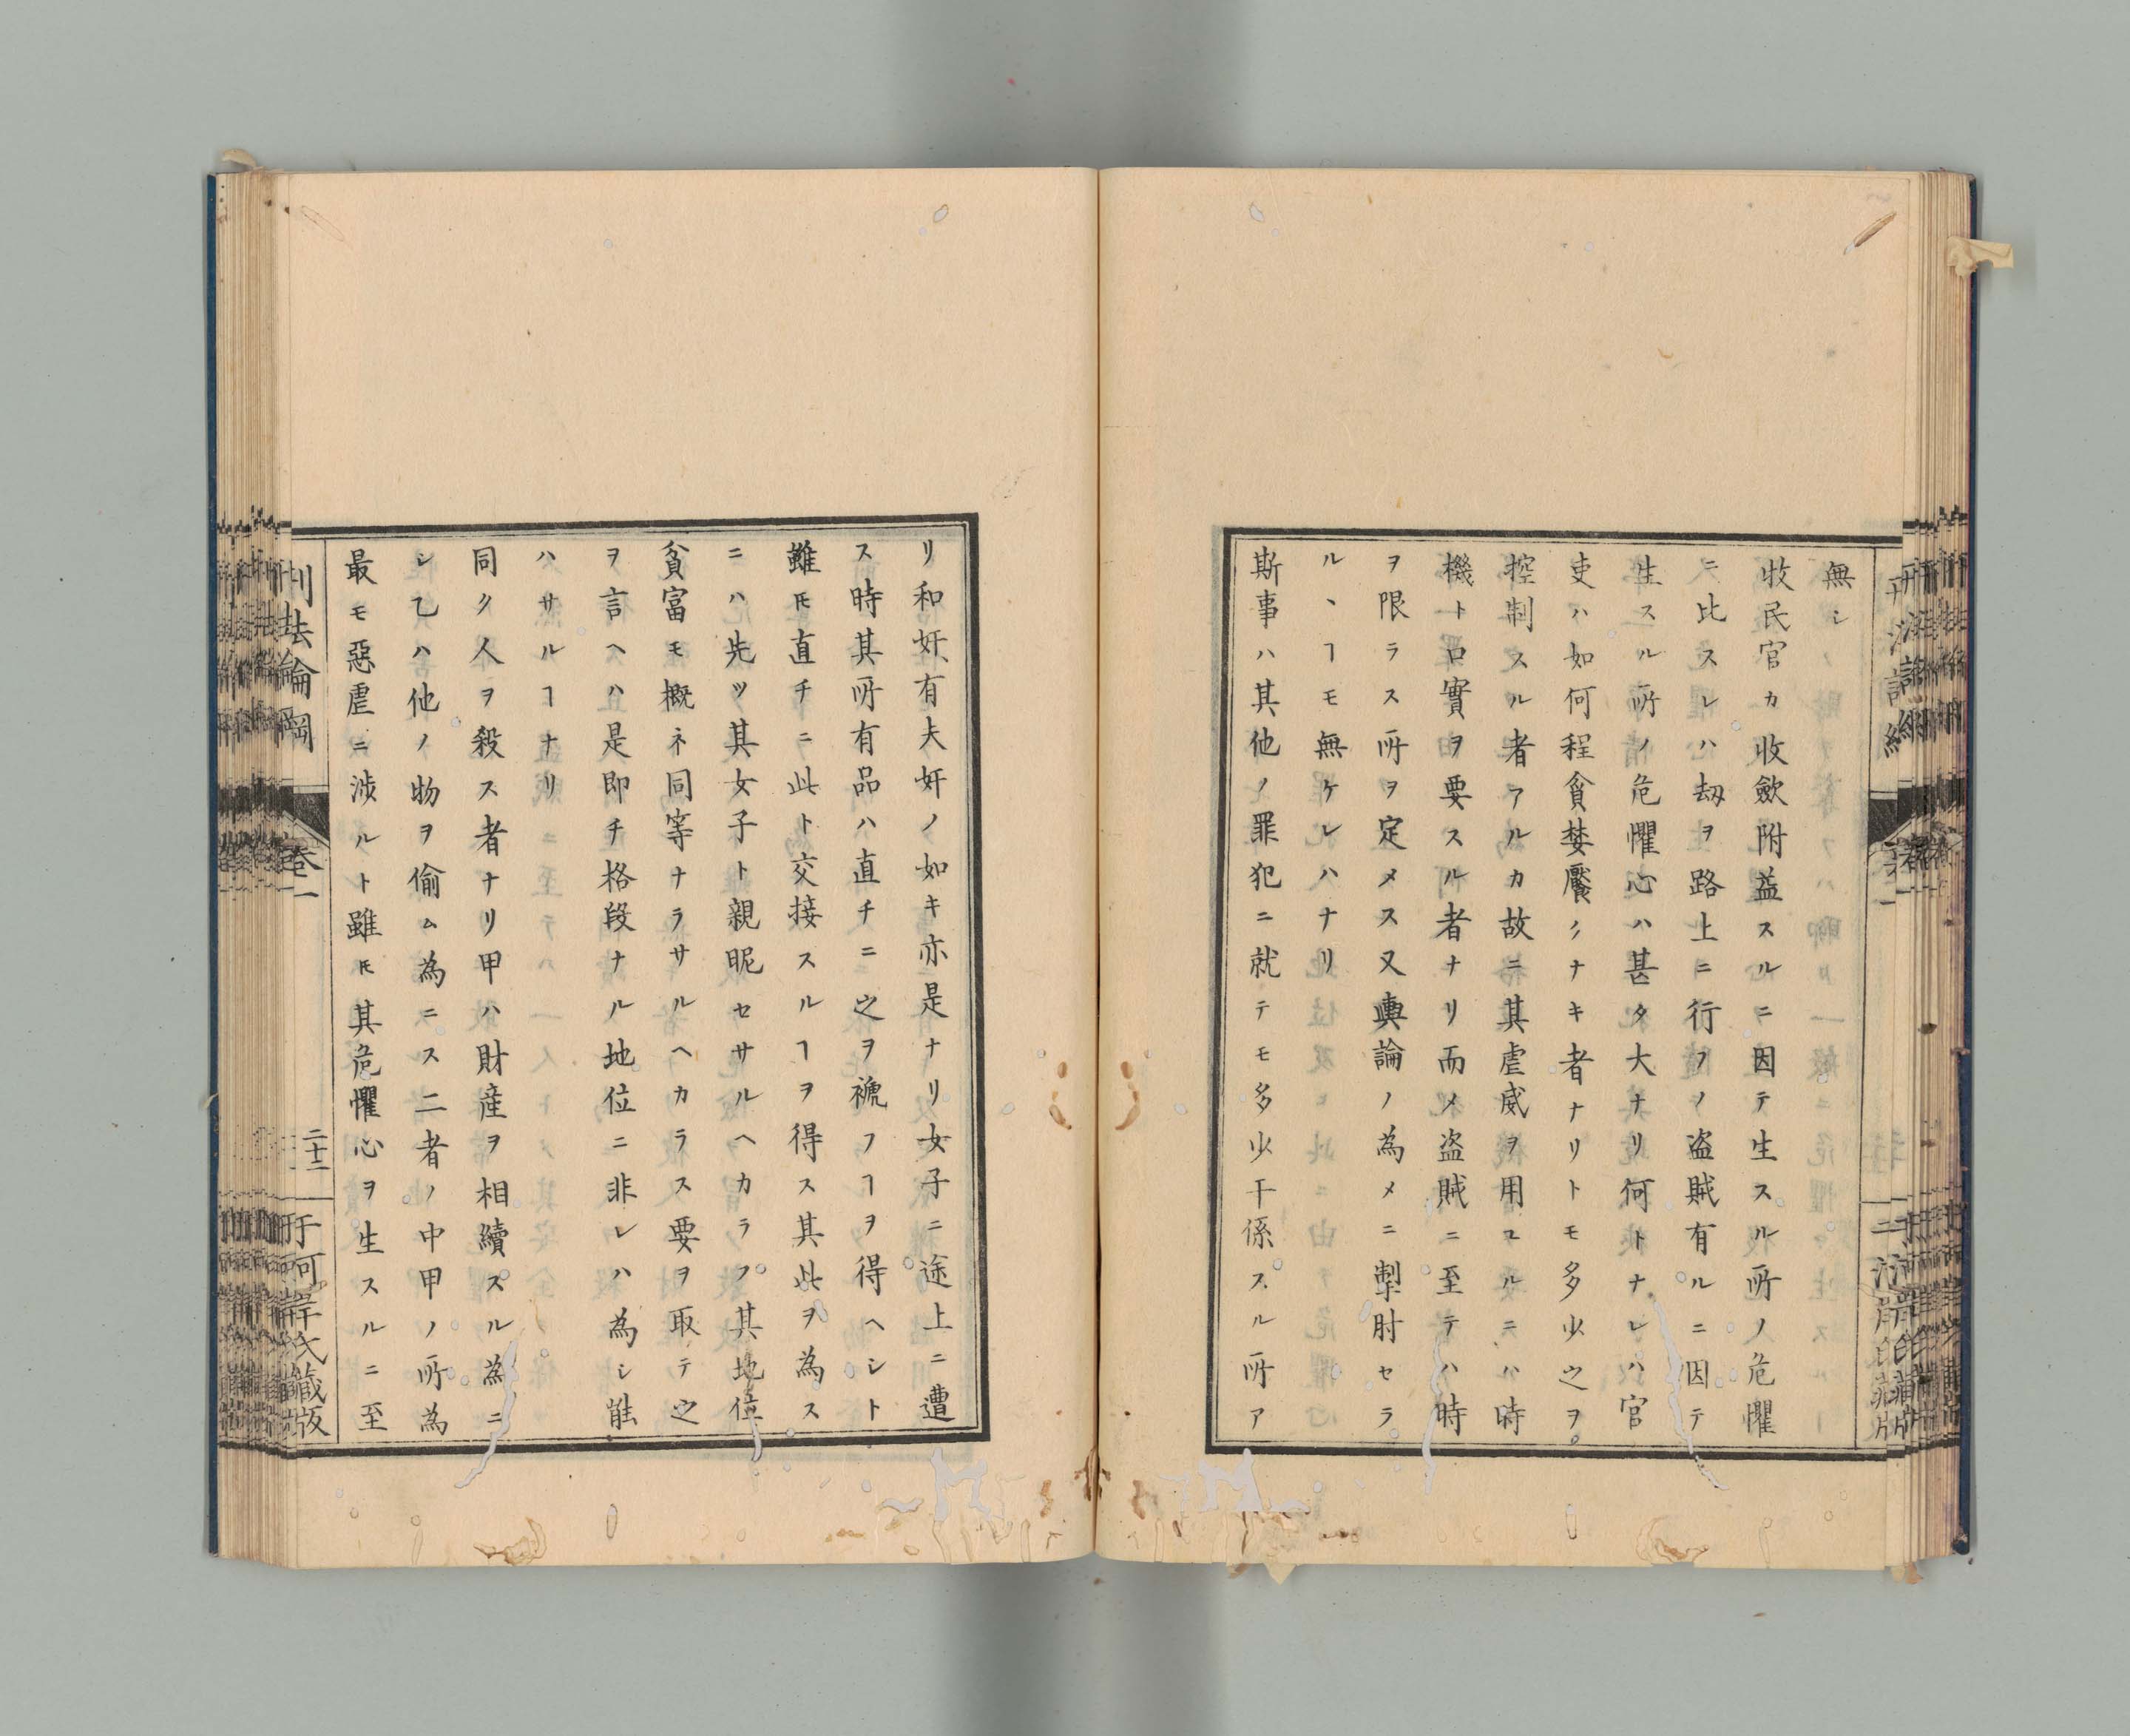 無シ
收民官カ收斂附益スルニ因テ生スル所ノ危懼
ニ比スレハ劫ヲ路上ニ行フノ盗賊有ルニ因テ
生スル所ノ危懼心ハ甚タ大ナリ何トナレハ官
吏ハ如何程貪婪饜クナキ者ナリトモ多少之ヲ
控制スル者アルカ故ニ其虐威ヲ用ユルニハ時
機ト口實ヲ要スル者ナリ而メ盗賊ニ至テハ時
ヲ限ラス所ヲ定メス又輿論ノ為メニ掣肘セラ
ルヽヿモ無ケレハナリ
斯事ハ其他ノ罪犯ニ就テモ多少干係スル所ア
リ和奸有夫奸ノ如キ亦是ナリ女子ニ途上ニ遭
ス時其所有品ハ直チニ之ヲ褫フヿヲ得ヘシト
雖𪜈直チニ此ト交接スルヿヲ得ス其此ヲ為ス
ニハ先ツ其女子ト親昵セサルヘカラス其地位
貧富モ概ネ同等ナラサルヘカラス要ヲ取テ之
ヲ言ヘハ是即チ格段ナル地位ニ非レハ為シ能
ハサルヿナリ
同ク人ヲ殺ス者ナリ甲ハ財産ヲ相續スル為ニ
シ乙ハ他ノ物ヲ偷ム為ニス二者ノ中甲ノ所為
最モ惡虐ニ渉ルト雖𪜈其危懼心ヲ生スルニ至
刑法論綱
卷一
二十二